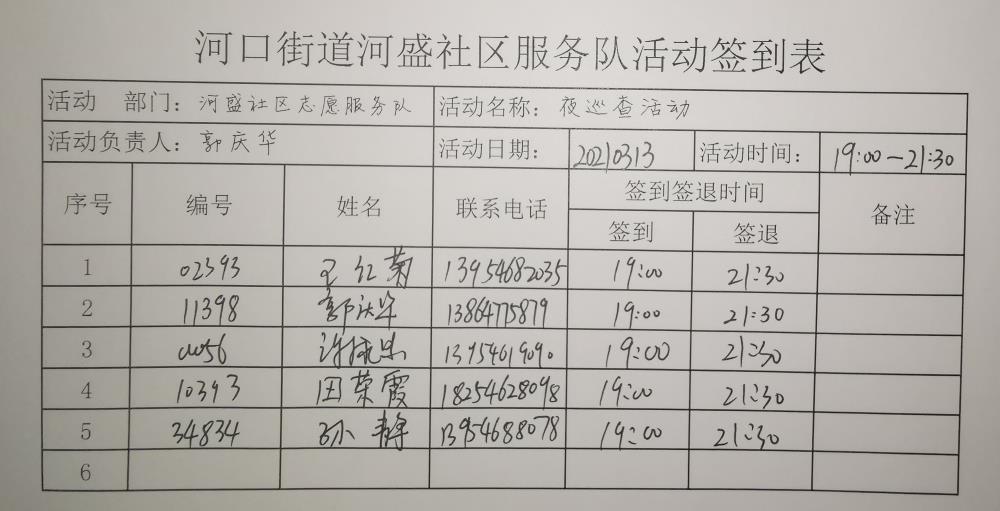 河口街道河盛社区服务队活动签到表
活动 部门：河盛社区志愿服务队 活动名称：夜巡查活动
活动负责人：郭庆华 活动日期：20210313 活动时间：19:00-21:30
序号 编号 姓名 联系电话 签到签退时间 备注
签到 签退
1 02393 王红菊 13954682035 19:00 21:30
2 11398 郭庆华 13864775879 19:00 21:30
3 13954619090 19:00 21:30
4 10393 田荣霞 18254628098 19:00 21:30
5 34834 孙静 13954688078 19:00 21:30
6